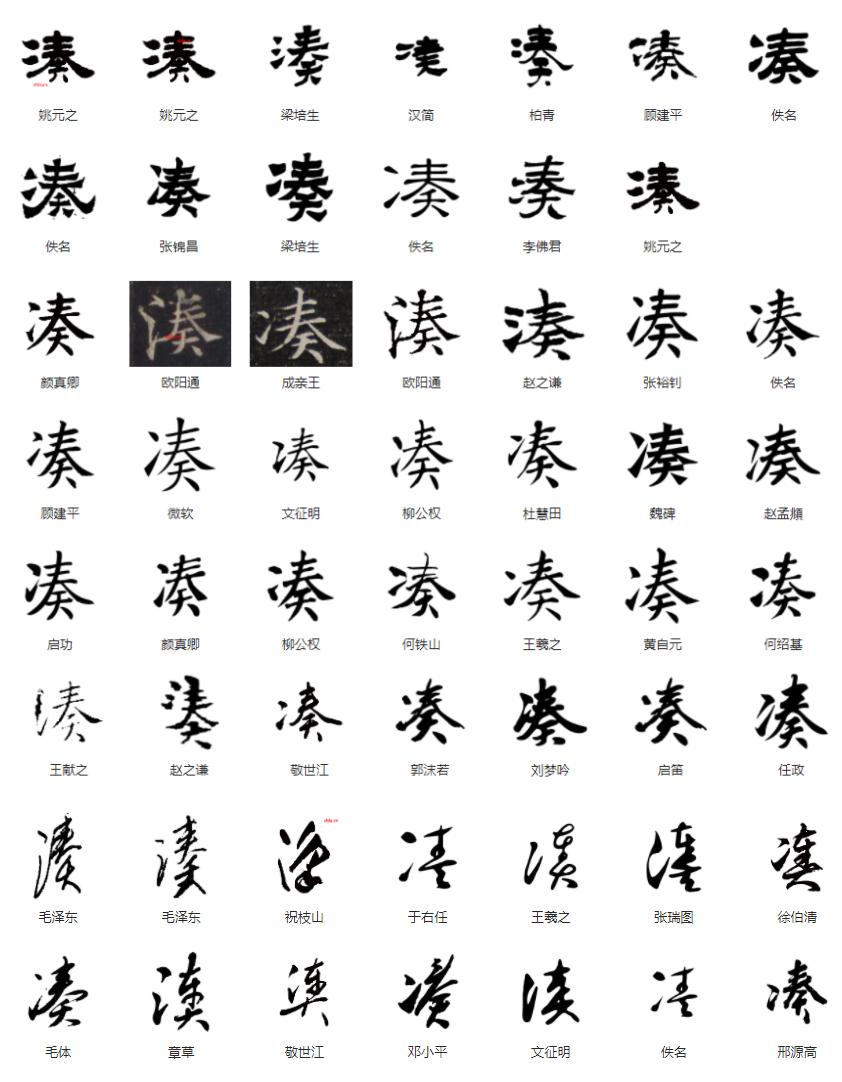 湊 湊 湊 湊 湊 湊 凑
姚元之 姚元之 梁培生 汉简 柏青 顾建平 佚名
湊 凑 凑 凑 湊 湊
佚名 张锦昌 梁培生 佚名 李佛君 姚元之
凑 湊 凑 湊 湊 凑 凑
颜真卿 欧阳通 成亲王 欧阳通 赵之谦 张裕钊 佚名
凑 凑 凑 凑 凑 凑 凑
顾建平 微软 文征明 柳公权 杜慧田 魏碑 赵孟頫
凑 凑 凑 凑 凑 凑 凑
启功 颜真卿 柳公权 何铁山 王羲之 黄自元 何绍基
湊 湊 凑 凑 凑 凑 凑
王献之 赵之谦 敬世江 郭沫若 刘梦吟 启笛 任政
湊 湊 湊 凑 湊 湊 凑
毛泽东 毛泽东 祝枝山 于右任 王羲之 张瑞图 徐伯清
凑 湊 湊 凑 湊 凑 凑
毛体 章草 敬世江 邓小平 文征明 佚名 邢源高